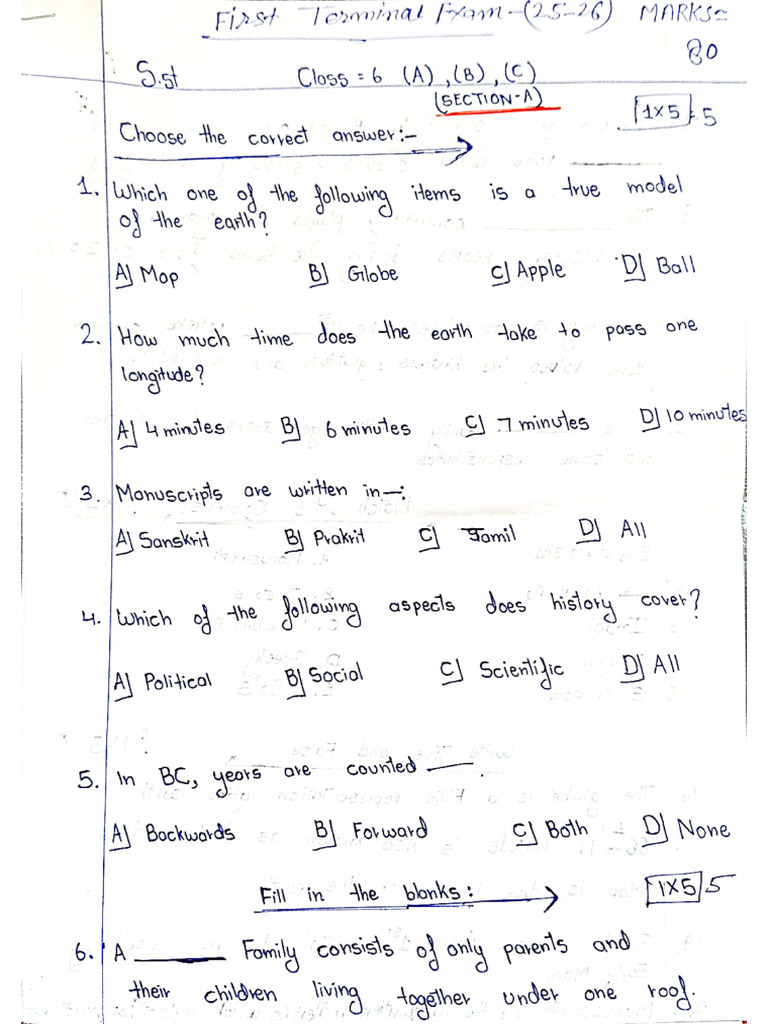 First Terminal Exam-(25-26) MARKS=
80
S.st Class = 6 (A), (B), (C)
(SECTION-A)
Choose the correct answer:- 1x5 = 5
1. Which one of the following items is a true model
of the earth?
A) Map B) Globe C) Apple D) Ball
2. How much time does the earth take to pass one
longitude?
A) 4 minutes B) 6 minutes C) 7 minutes D) 10 minutes
3. Manuscripts are written in-:
A) Sanskrit B) Prakrit C) Tamil D) All
4. Which of the following aspects does history cover?
A) Political B) Social C) Scientific D) All
5. In BC, years are counted ___.
A) Backwards B) Forward C) Both D) None
Fill in the blanks: 1x5 5
6. A ______ Family consists of only parents and
their children living together under one roof.